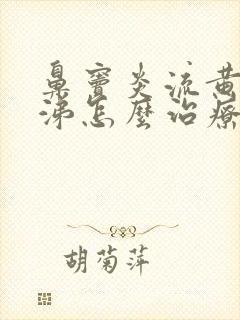 鼻窦炎流黄
涕怎麼治療
胡菊萍